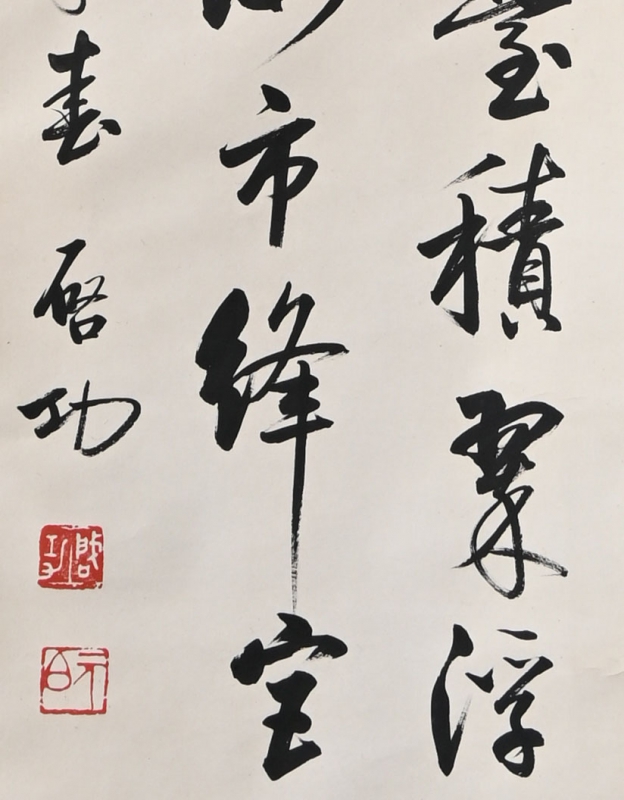 臺積翠浮
市絳室
春 啓功
啓功
元白